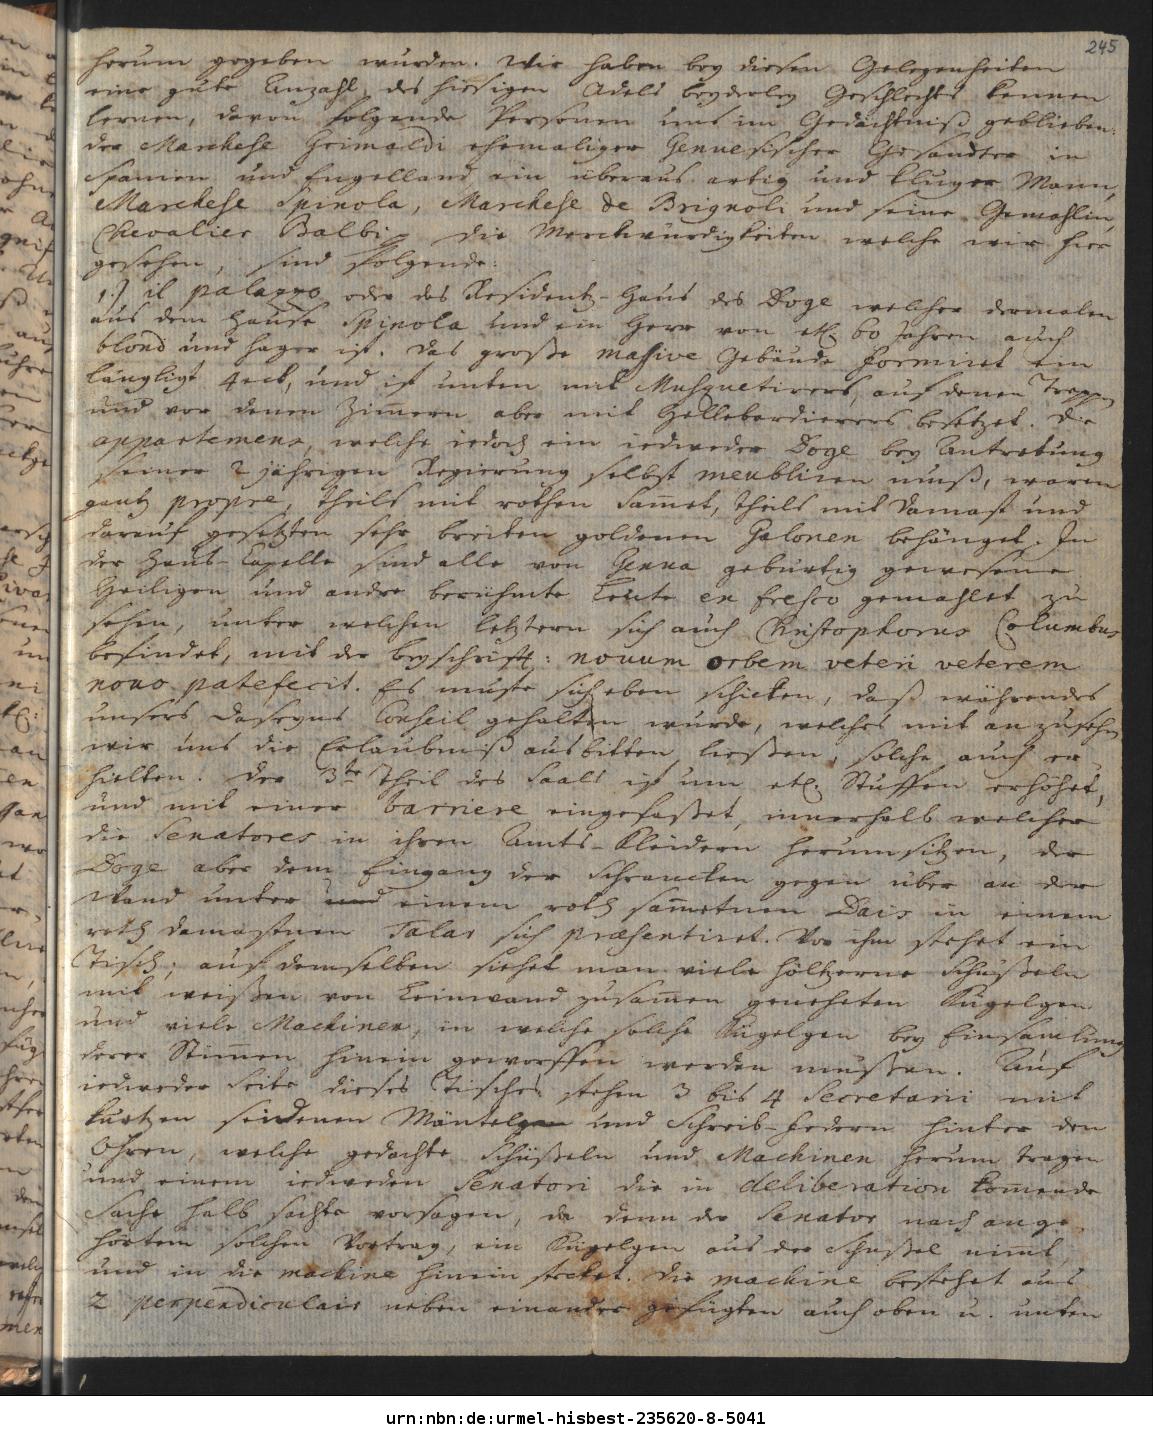 245
herum gegeben wurden. Wir haben bey diesen Gelegenheiten
eine gute Anzahl des hiesigen Adels beyderley Geschlechts kennen
lernen, davon folgende Personen uns im Gedächtniß geblieben:
der Marchese Grimaldi ehemaliger Genuesischer Gesandter in
Spanien und Engelland, ein überaus artig und kluger Mann,
Marchese Spinola, Marchese de Brignoli und seine Gemahlin,
Chevalier Balbi. Die Merckwürdigkeiten welche wir hier
gesehen, sind folgende:
1.) il palazzo oder das Residentz-Haus des Doge welcher dermalen
aus dem Hause Spinola und ein Herr von etl. 60 Jahren auch
blond und hager ist. Das große massive Gebäude formiret ein
längligt 4eck, und ist unten mit Musquetirers, auf denen Treppen
und vor denen Zimmern aber mit Hellebardierers besetzet. Die
appartemens, welche iedoch ein iedweder Doge bey Antretung
seiner 2 jährigen Regierung selbst meubliren muß, waren
gantz propre, theils mit rothen Sammet, theils mit Damast und
darauf gesetzten sehr breiten goldenen Galonen behänget. In
der Haus-Capelle sind alle von Genua gebürtig gewesene
Heiligen und andre berühmte Leute en fresco gemahlet zu
sehen, unter welchen letztern sich auch Christophorus Columbus
befindet, mit der Byschrifft: novum orbem veteri veterem
novo patefecit. Es muste sich eben schicken, daß währendes
unsers Daseyns Conseil gehalten wurde, welches mit anzusehn
wir uns die Erlaubniß ausbitten ließen, solche auch er
hielten. Der 3te Theil des Saals ist um etl. Stuffen erhöhet,
und mit einer barriere eingefaßet, innerhalb welcher
die Senatores in ihren Amts-Kleidern herumsitzen, der
Doge aber dem Eingang der Schrancken gegen über an der
Wand unter und einem roth sammetnen Dais in einem
roth damastnen Talar sich præsentiret. Vor ihm stehet ein
Tisch; auf demselben siehet man viele höltzerne Schüßeln
mit weißen von Leinwand zusammen geneheten Kügelgen
und viele Machinen, in welche solche Kügelgen bey Einsamlung
derer Stimmen hinein geworffen werden müßen. Auf
iedweder Seite dieses Tisches stehen 3 bis 4 Secretarii mit
kurtzen seidenen Mäntelgen und Schreib-Federn hinter den
Ohren, welche gedachte Schüßeln und Machinen herum tragen
und einem iedweden Senatori die in deliberation kommende
Sache halb sachte vorsagen, da denn der Senator nach ange
hörtem solchen Vortrag, ein Kügelgen aus der Schüßel nimmt,
und in die machine hinein stecket. Die machine bestehet aus
2 perpendiculair neben einander gefügten auch oben u. unten
urn:nbn:de:urmel-hisbest-235620-8-5041